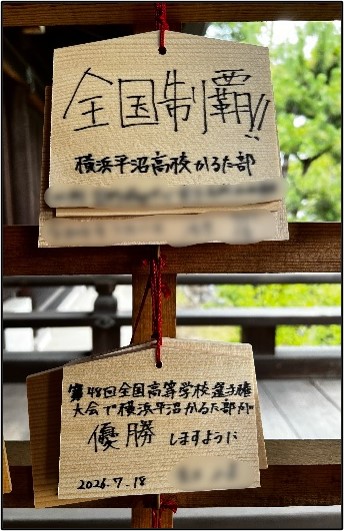 全国制覇!!
横浜平沼高校かるた部
第48回全国高等学校選手権
大会で横浜平沼かるた部が
優勝しますように
2026.7.18